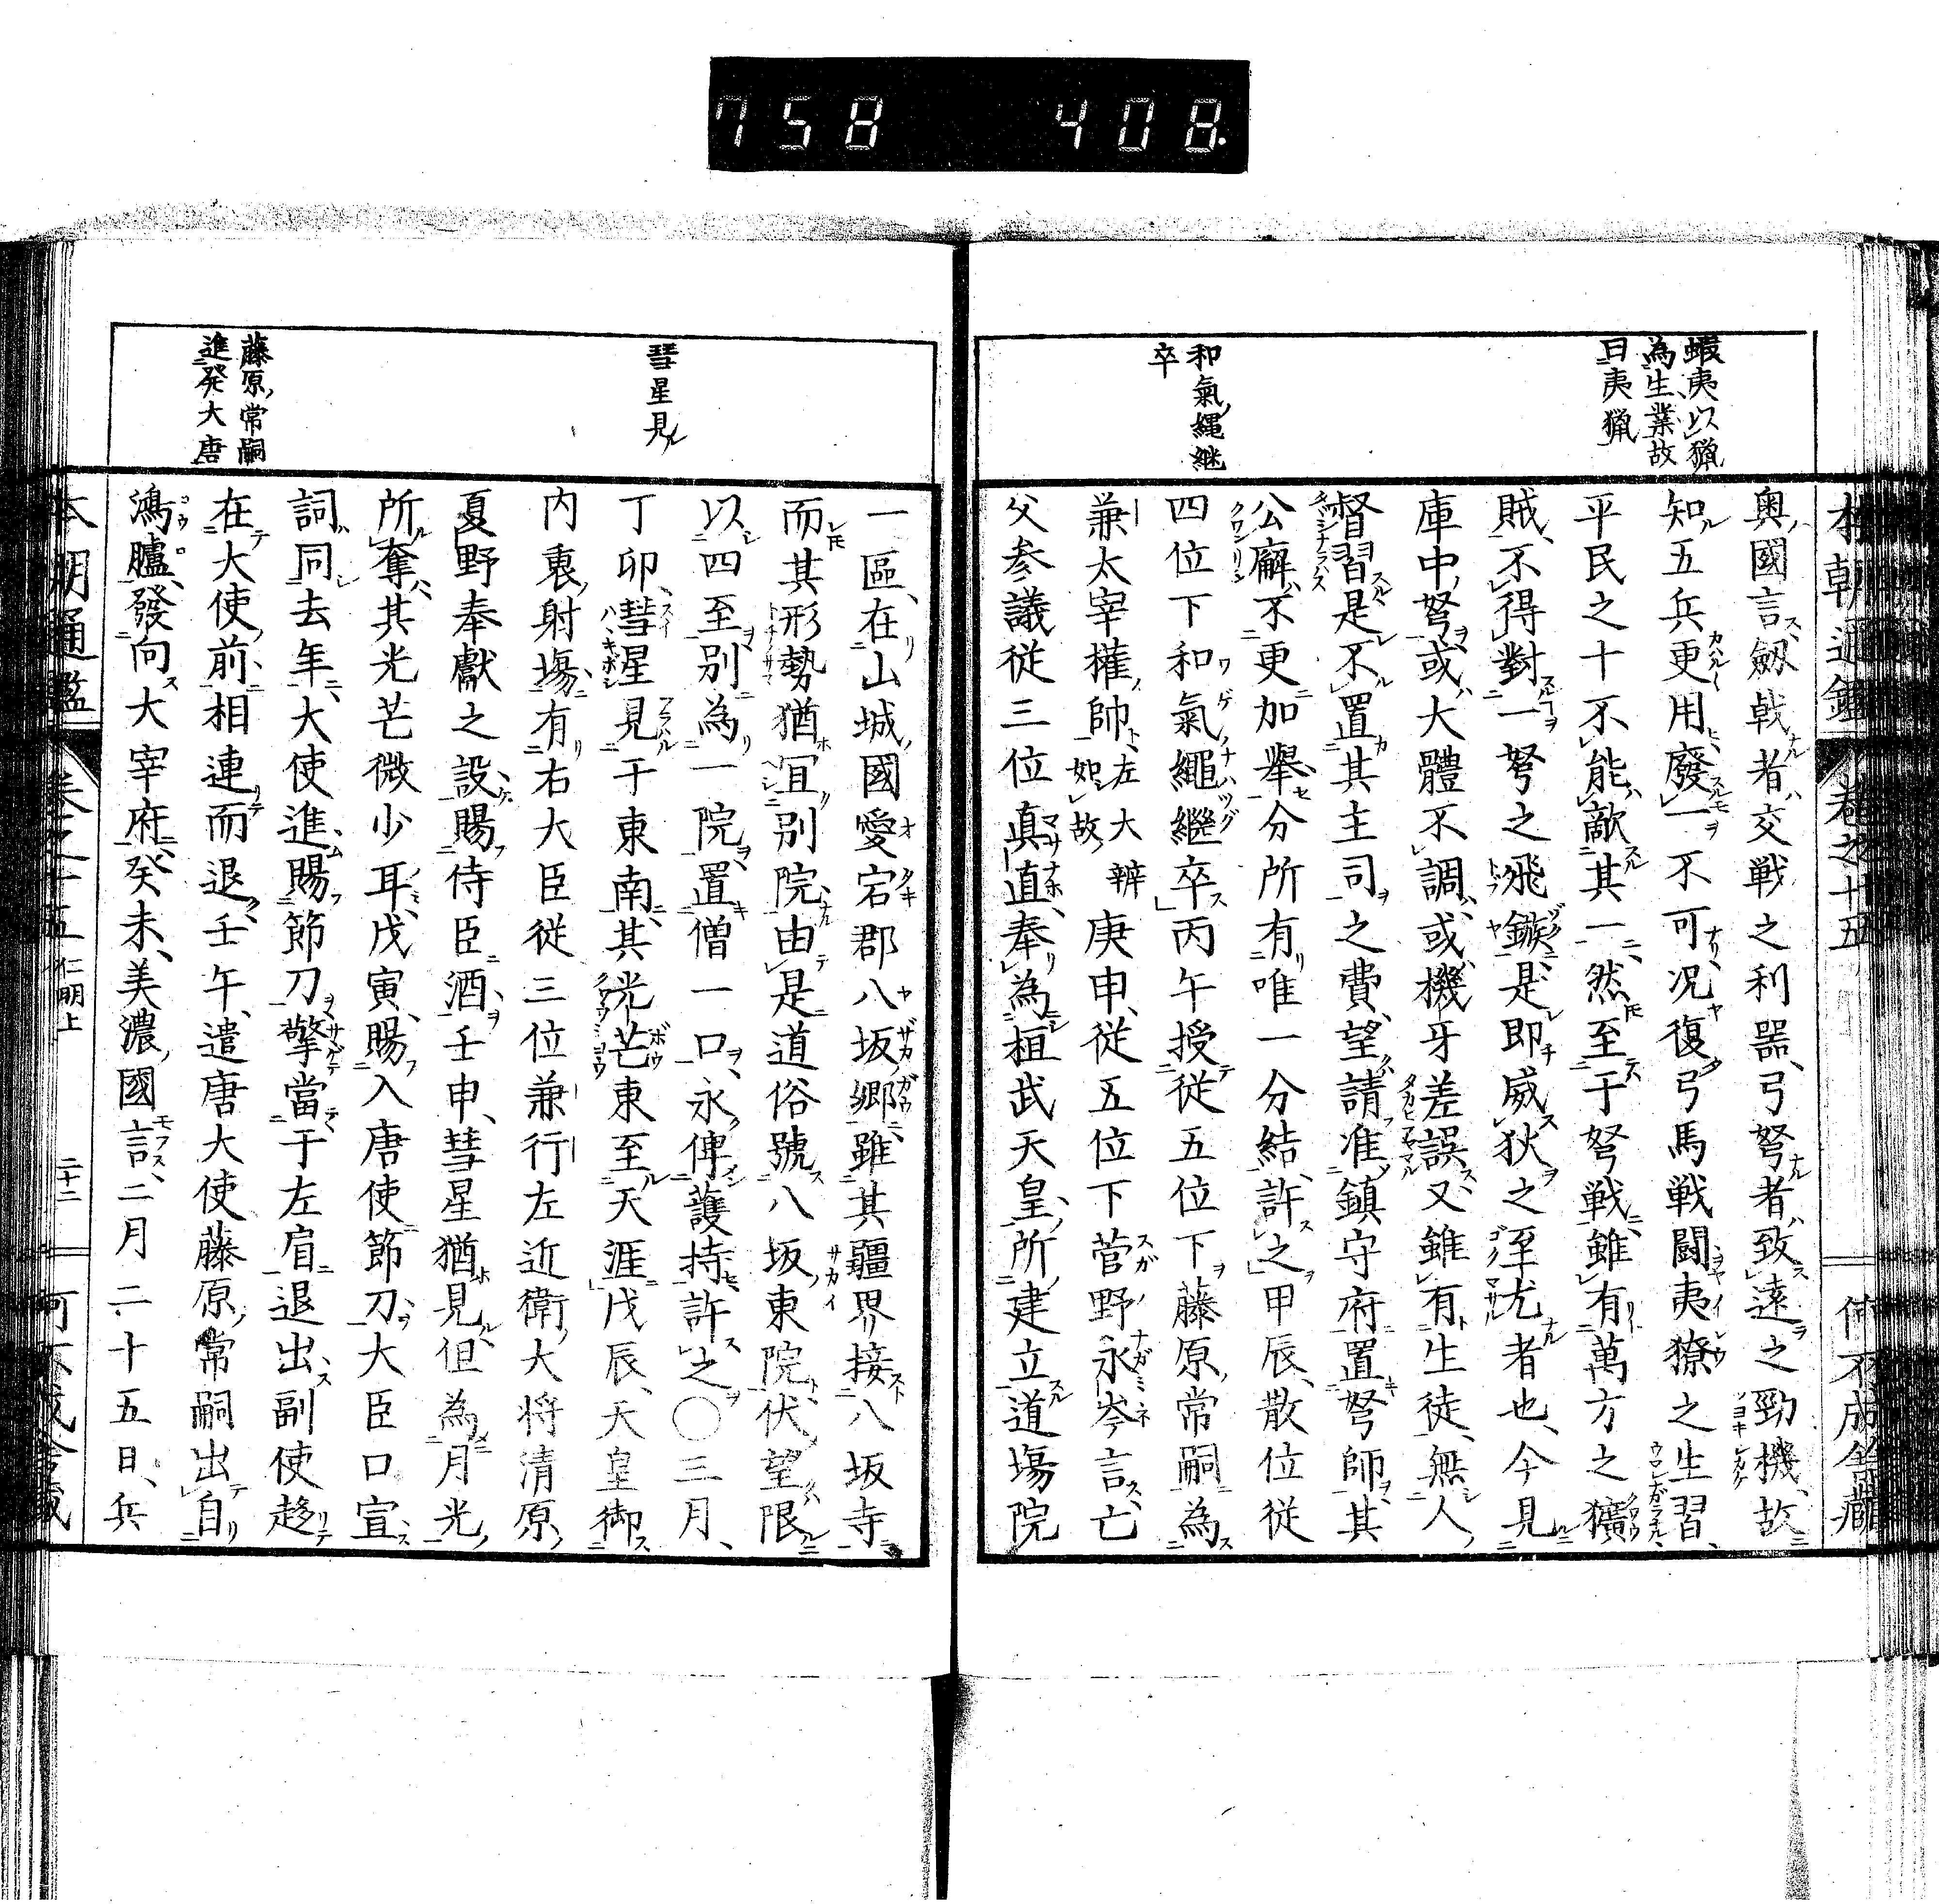 758 408.
本朝通鑑 巻之十五 何不成舍藏
蝦夷以獵
為生業故
曰夷獵
和氣繩継
卒
奥國言劔戟者交戦之利器弓弩者致遠之勁機故
知五兵更用廢一不可況復弓馬戦闘夷獠之生習
平民之十不能敵其一然至于弩戦雖有萬方之獷
賊不得對一弩之飛鏃是即威狄之至尤者也今見
庫中弩或大體不調或機牙差誤又雖有生徒無人
督習是不置其主司之費望請准鎮守府置弩師其
公廨不更加舉分所有唯一分結許之甲辰散位從
四位下和氣繩継卒丙午授從五位下藤原常嗣為
兼太宰權帥左大辨如故庚申從五位下菅野永岑言亡
父参議從三位真直奉為桓武天皇所建立道場院
彗星見
藤原常嗣
進發大唐
一區在山城國愛宕郡八坂郷雖其疆界接八坂寺
而其形勢猶冝別院由是道俗號八坂東院伏望限
以四至別為一院置僧一口永俾護持許之〇三月
丁卯彗星見于東南其光芒東至天涯戊辰天皇御
内裏射場有右大臣從三位兼行左近衛大将清原
夏野奉獻之設賜侍臣酒壬申彗星猶見但為月光
所奪其光芒微少耳戊寅賜入唐使節刀大臣口宣
詞同去年大使進賜節刀擎當于左肩退出副使趍
在大使前相連而退壬午遣唐大使藤原常嗣出自
鴻臚發向大宰府癸未美濃國言二月二十五日兵
本朝通鑑 巻之十五 仁明上 二十二